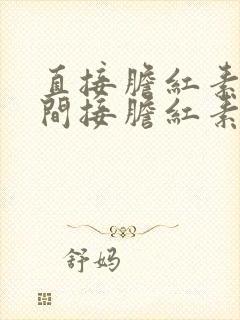 直接膽紅素
間接膽紅素
舒妈